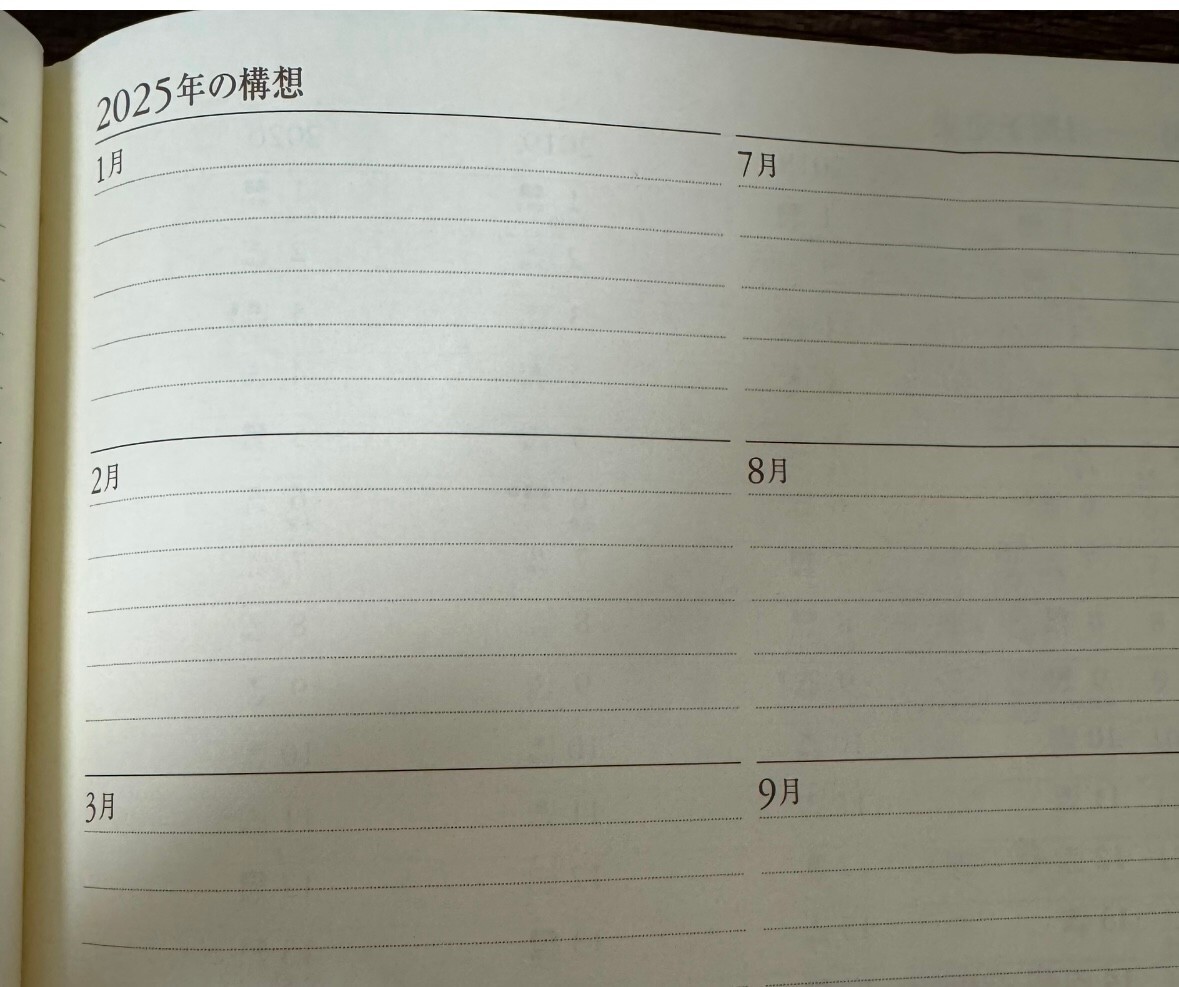 2025年の構想
1月
2月
3月
7月
8月
9月